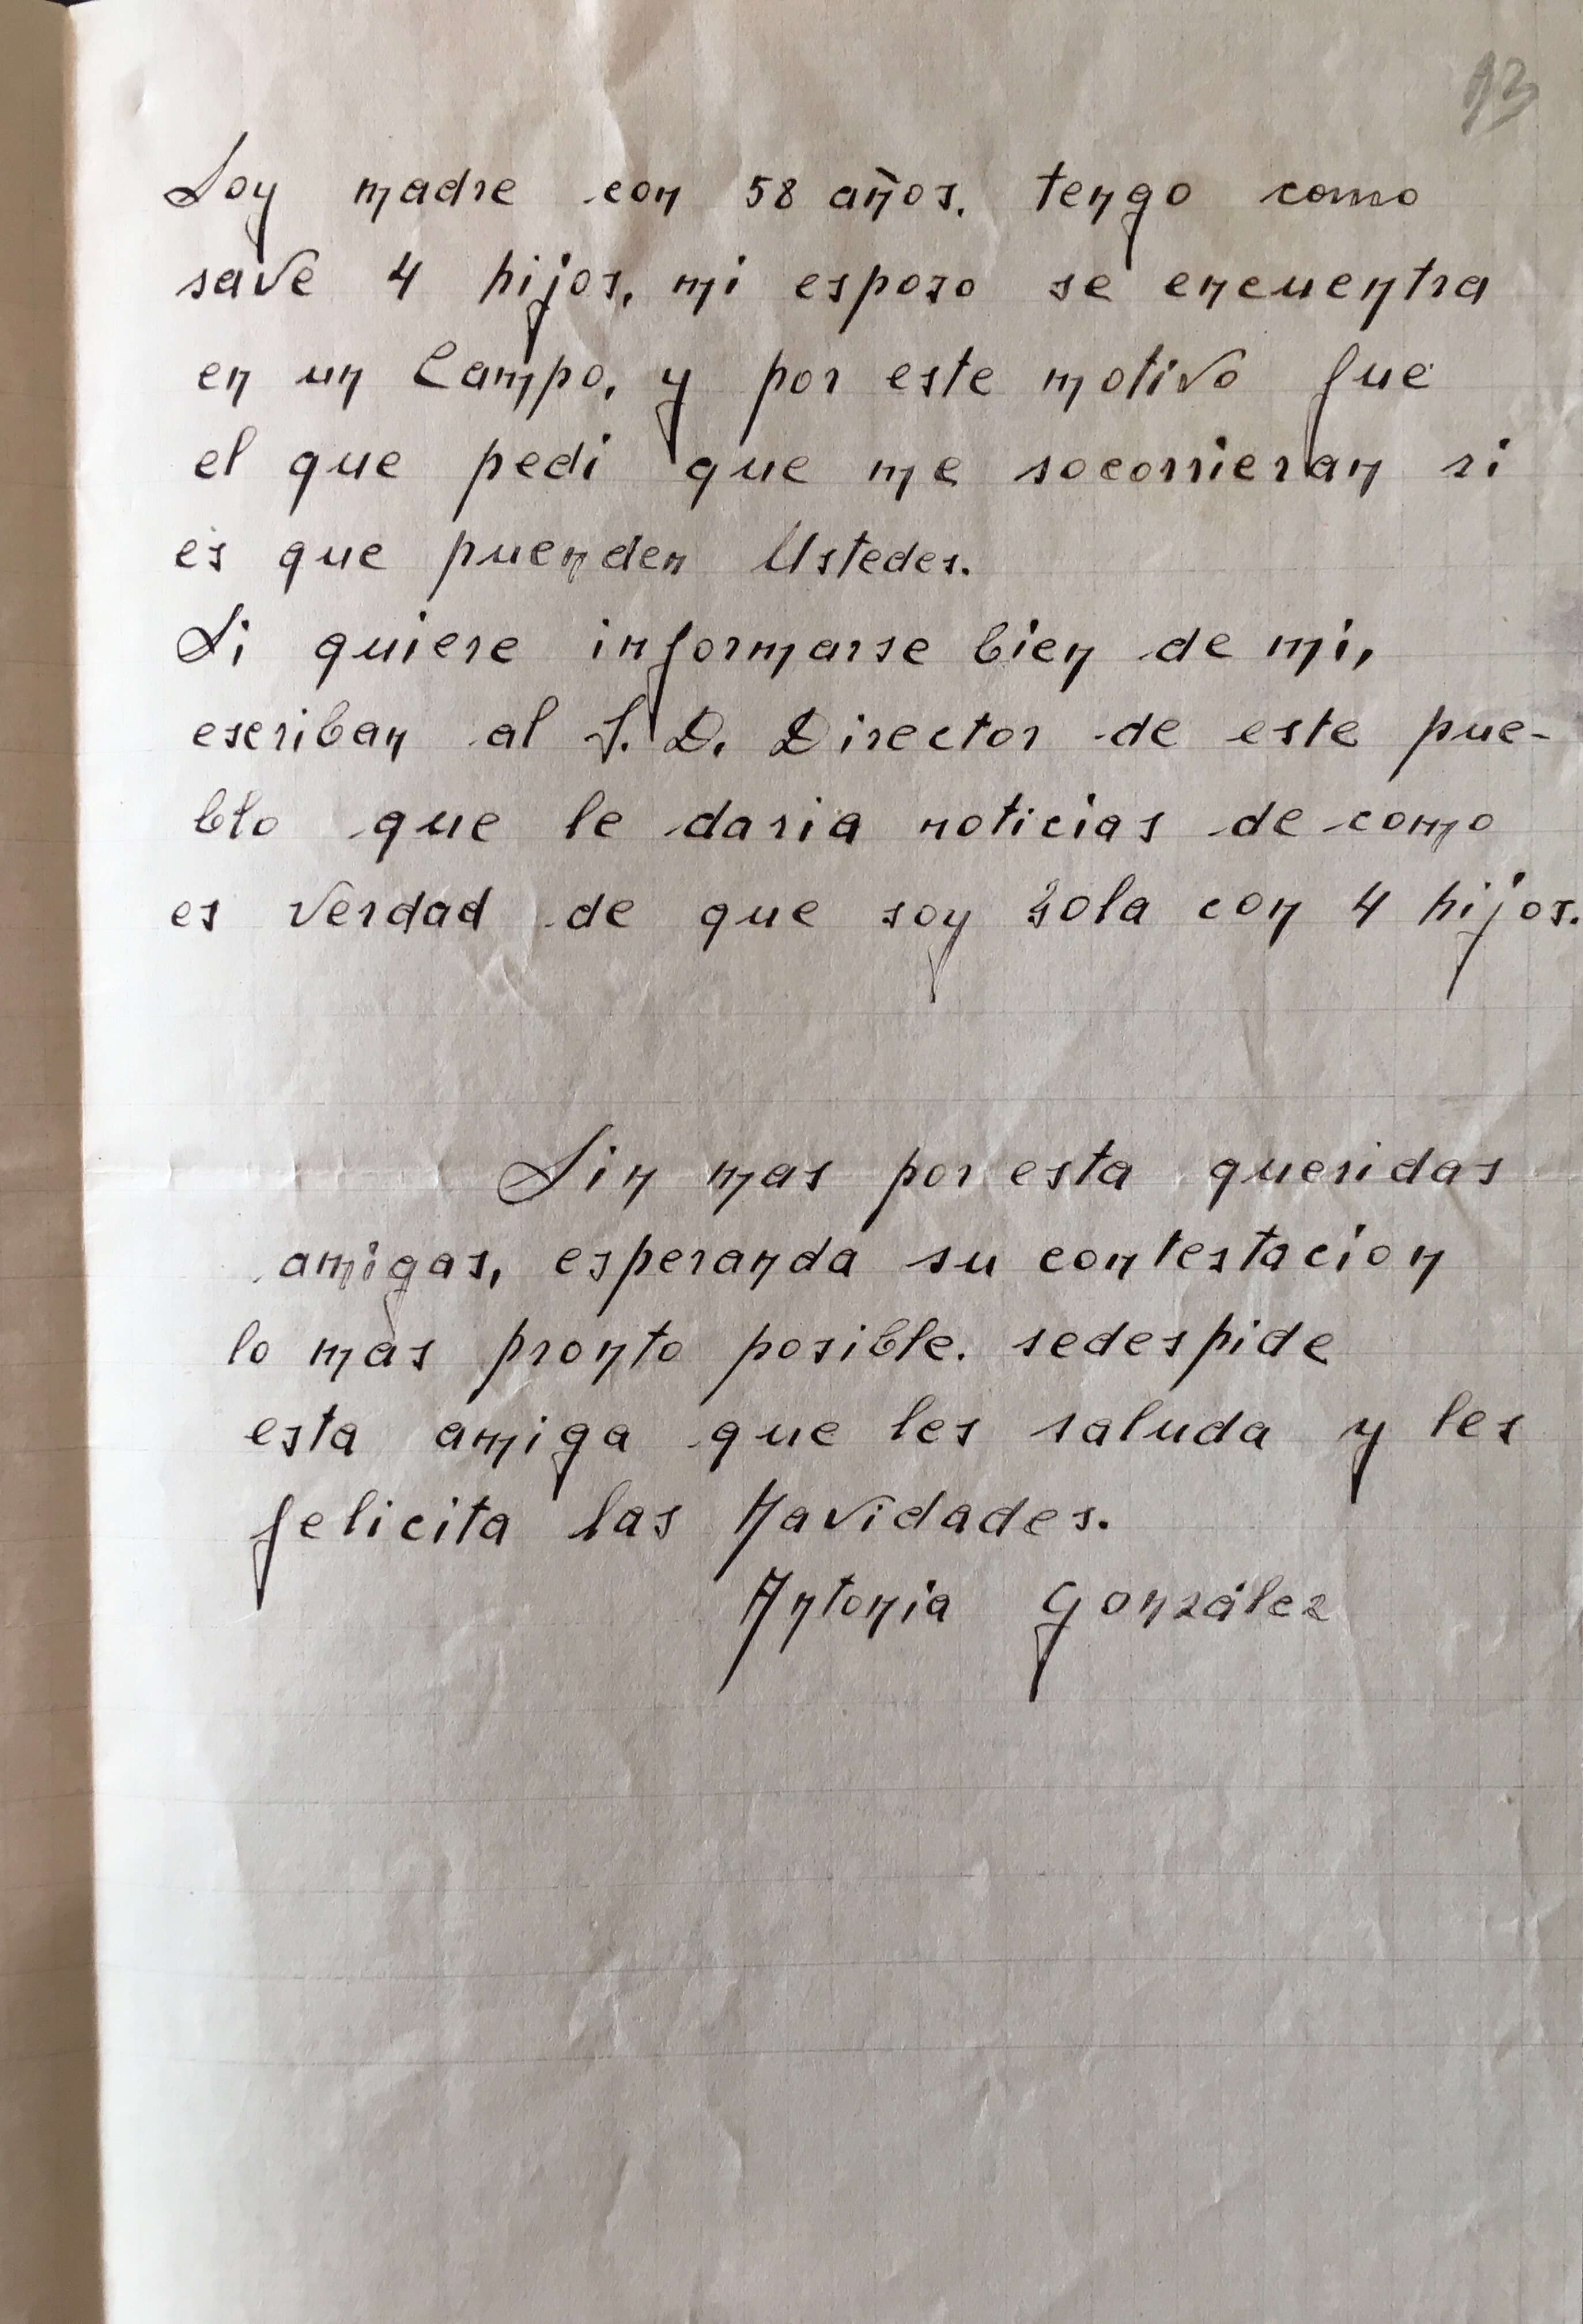 93
Soy madre con 58 años. tengo como
save 4 hijos, mi esposo se encuentra
en un Campo, y por este motivo fue
el que pedi que me socorrieran si
es que puenden Ustedes.
Si quiere informarse bien de mi,
escriban al S. D. Director de este pue-
blo que le daria noticias de como
es verdad de que soy sola con 4 hijos.
Sin mas por esta queridas
amigas, esperanda su contestacion
lo mas pronto posible. sedespide
esta amiga que les saluda y les
felicita las Navidades.
Antonia González